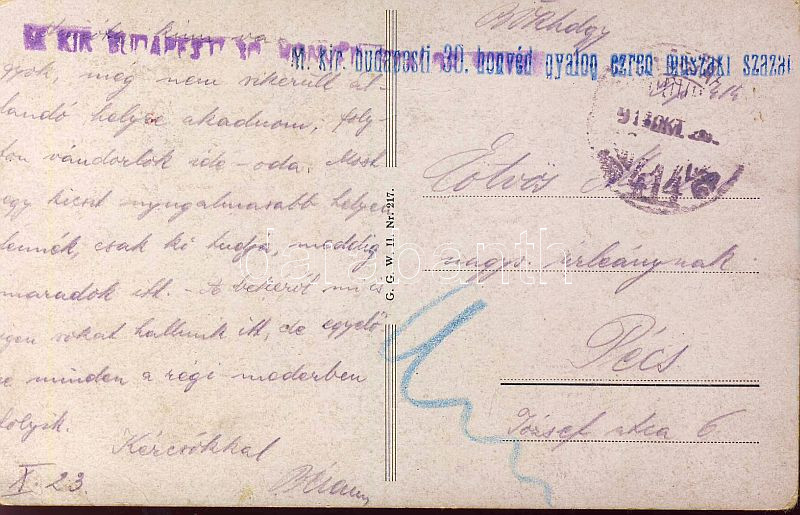 M. KIR. BUDAPESTI 30.
M. kir. budapesti 30. honvéd gyalog ezred műszaki század
gyok, még nem sikerült ál-
landó helyre akadnom, foly-
ton vándorlok ide-oda. Most
egy kicsit nyugalmasabb helyen
lennék, csak ki tudja, meddig
maradok itt. - A békéről mi is
igen sokat hallunk itt, de egyelő-
re minden a régi mederben
folyik.
Kézcsókkal
X. 23.
G. G. W. II. Nr. 217.
414
Eötvös
nagys. úrleánynak
Pécs
József utca 6
darabanth